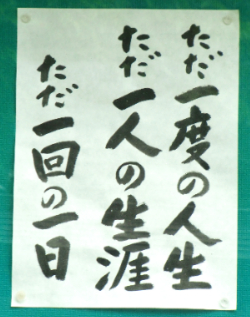 ただ一度の人生
ただ一人の生涯
ただ一回の一日